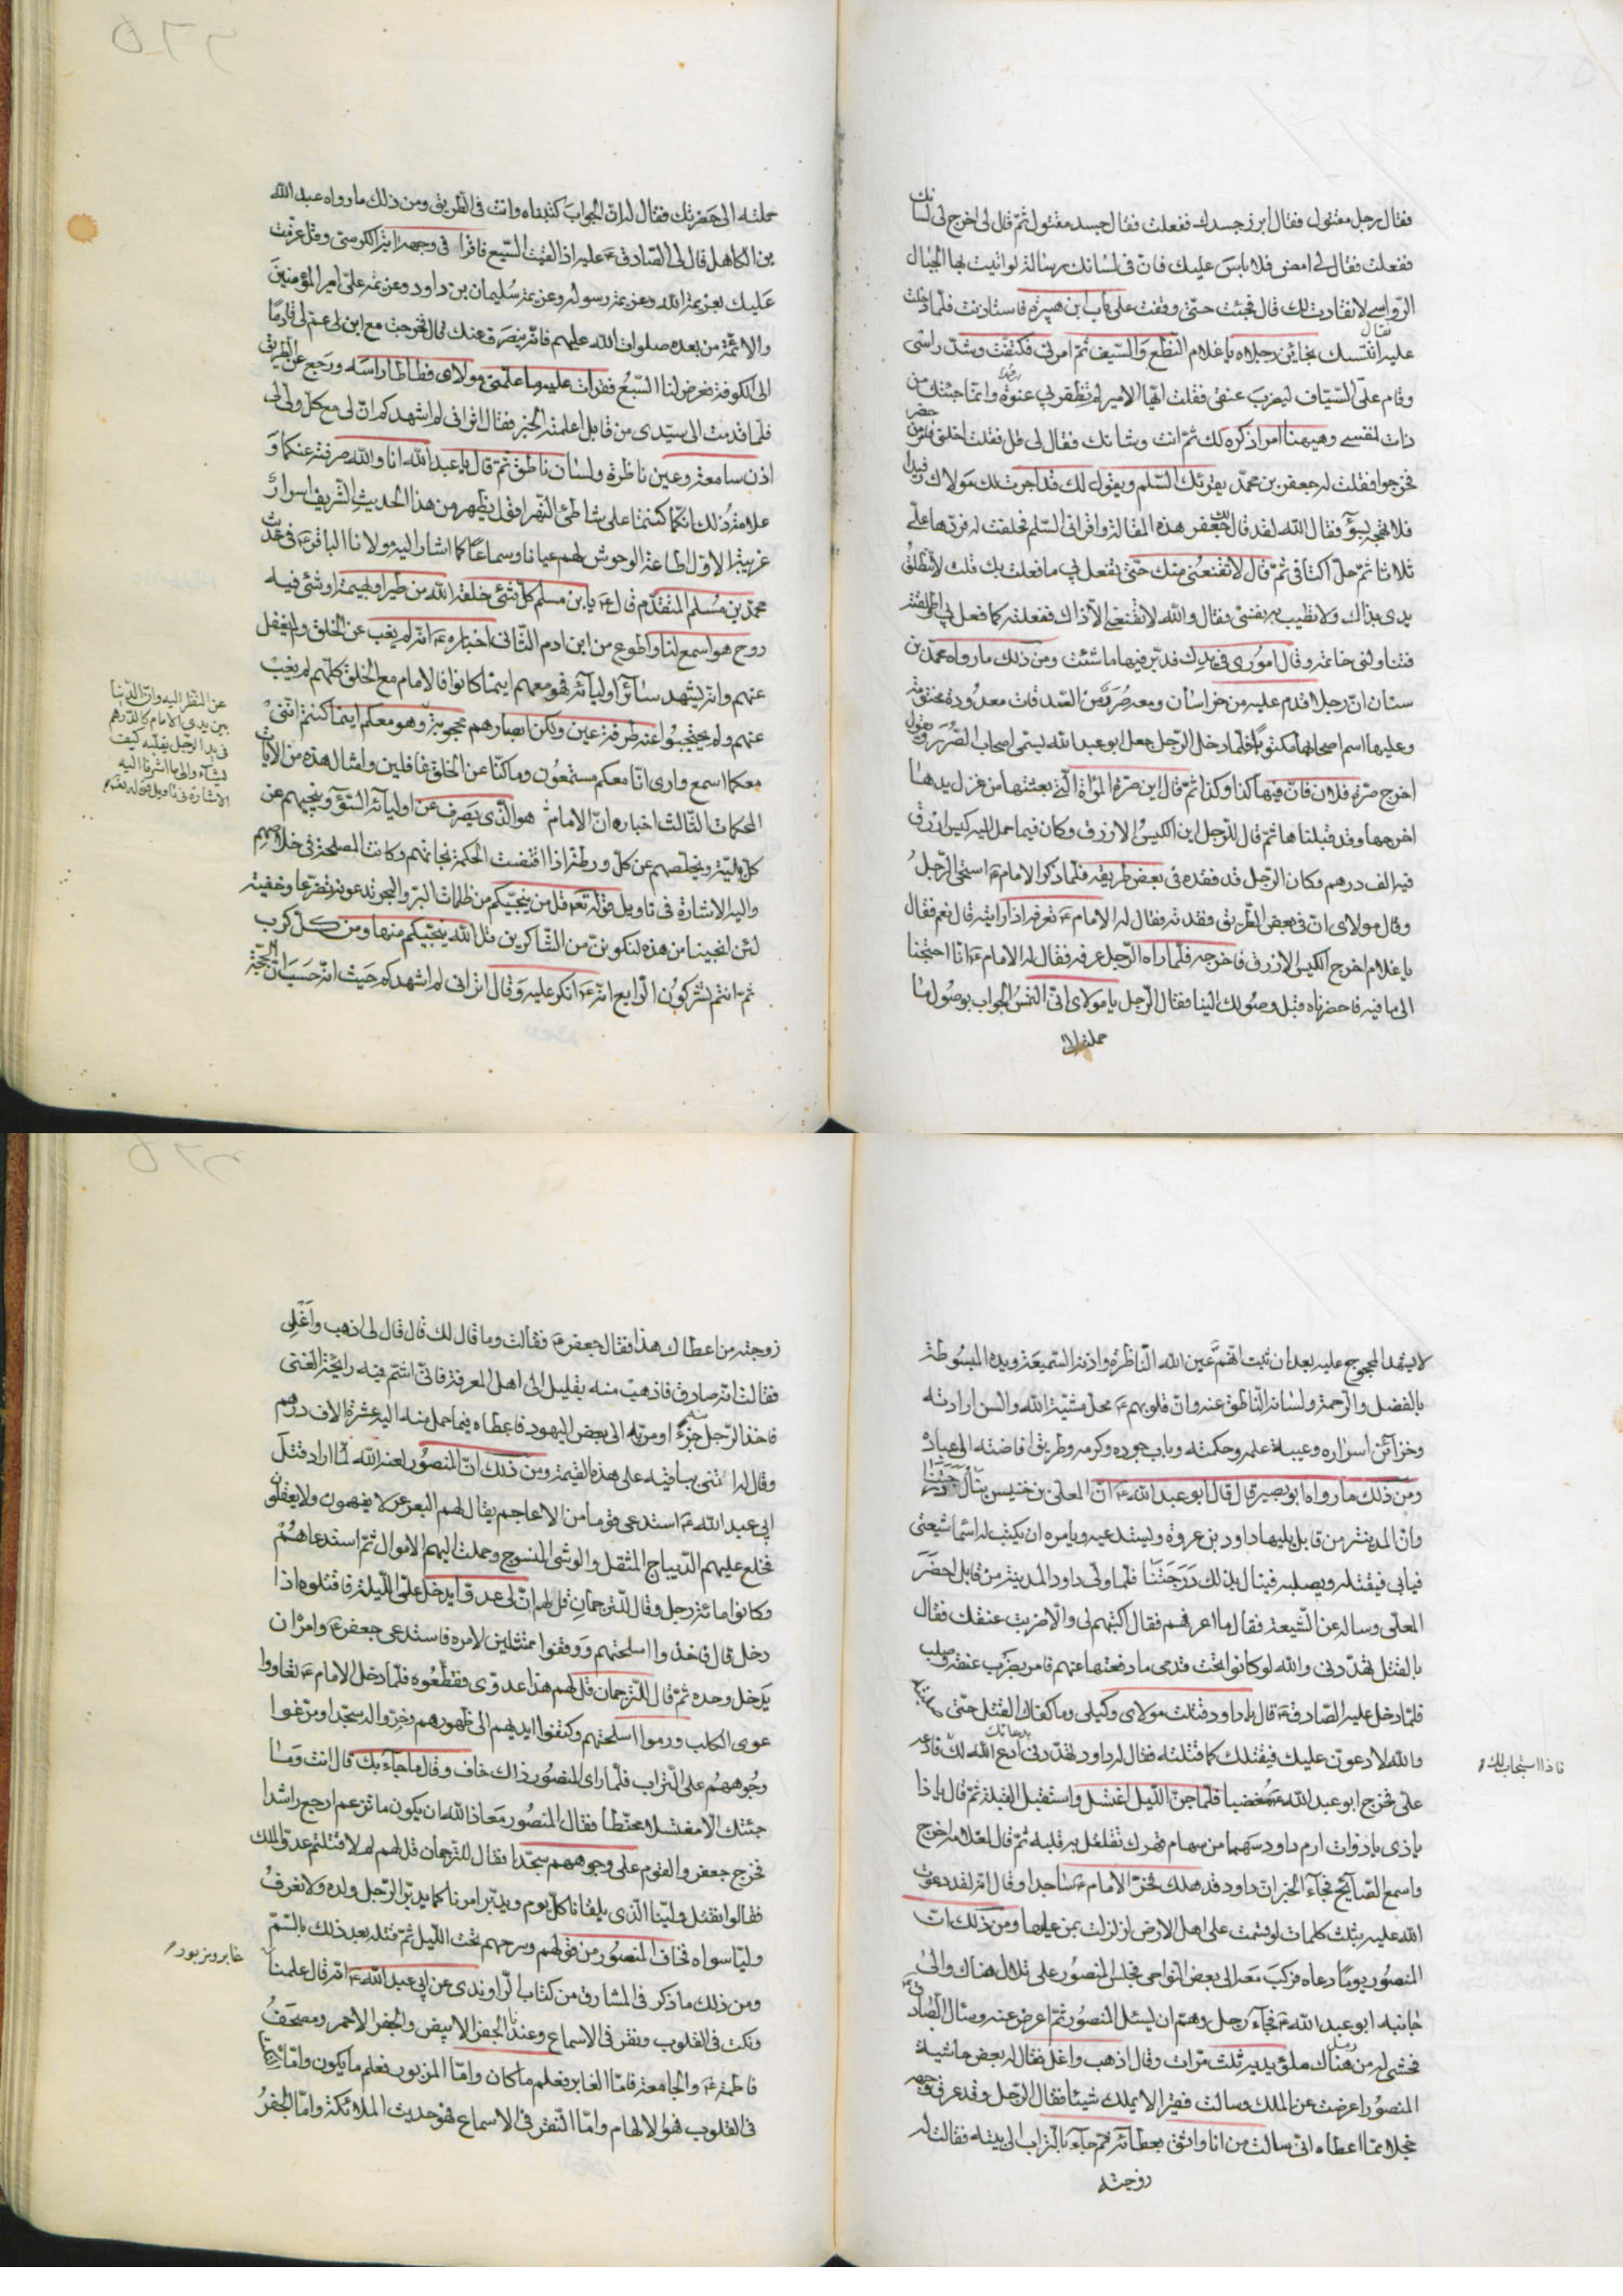 فقال رجل مقتول فقال ابرز جسدك ففعلت فقال جسد مقتول ثم قال لي اخرج لي لسانك
ففعلت فقال لي امض فلا باس عليك فان في لسانك رسالة لو اتيت بها الجبال
الرواسي لانقادت لك قال فجئت حتى وقفت على باب ابن هبيرة فاستاذنت فلما دخلت
عليه قال اتتك بخائن رجلاه يا غلام النطع والسيف ثم امر بي فكتفت وشد راسي
وقام علي السياف ليضرب عنقي فقلت ايها الامير لم تظفر بي عنوة وانما جئتك من
ذات نفسي وهيهنا امر اذكره لك ثم انت وشانك فقال لي قل فقلت اخلني فامر من حضر
فخرجوا فقلت له جعفر بن محمد يقرئك السلم ويقول لك قد اجرت عليك مولاك رفيدا
فلا تهجه بسوء فقال الله لقد قال لك جعفر هذه المقالة واقراني السلم فحلفت له فردها علي
ثلاثا ثم حل اكتافي ثم قال لا تقنعني منك حتى تفعل بي ما فعلت بك قلت لا تنطلق
يدي بذاك ولا تطيب به نفسي فقال والله لا تقنعني الا ذاك ففعلت كما فعل بي واطلقته
فناولني خاتمه وقال اموري في يدك فدبر فيها ما شئت ومن ذلك ما رواه محمد بن
سنان ان رجلا قدم عليه من خراسان ومعه صرر من الصدقات معدودة مختومة
وعليها اسم اصحابها مكتوبا فلما دخل الرجل جعل ابو عبد الله يسمي اصحاب الصرر ويقول
اخرج صرة فلان فان فيها كذا وكذا ثم قال اين صرة المراة التي بعثتها من غزل يدها
اخرجها وقد قبلناها ثم قال للرجل اين الكيس الازرق وكان فيما حمل اليه كيس ازرق
فيه الف درهم وكان الرجل قد فقده في بعض طريقه فلما ذكر الامام استحى الرجل
وقال مولاي ان في بعض الطريق وفقدته فقال له الامام تعرفه اذا رايته قال نعم فقال
يا غلام اخرج الكيس الازرق فاخرجه فلما راه الرجل عرفه فقال له الامام انا احتجنا
الى ما فيه فاحضرناه قبل وصولك الينا فقال الرجل يا مولاي اني التمس الجواب بوصول ما
حملته الى
حملته الى حضرتك فقال له ان الجواب كتبناه وانت في الطريق ومن ذلك ما رواه عبد الله
بن الكاهل قال لي الصادق عليه اذا لقيت السبع فاقرا في وجهه اية الكرسي وقل عزمت
عليك بعزيمة الله وعزيمة رسوله وعزيمة سليمان بن داود وعزيمة علي امير المؤمنين
والائمة من بعده صلوات الله عليهم فانه ينصرف عنك قال فخرجت مع ابن لي عم لي قادما
الى الكوفة فعرض لنا السبع فقرات عليه ما علمني مولاي فطاطا راسه ورجع عن الطريق
فلما قدمت الى سيدي من قابل اعلمته الخبر فقال اتراني لم اشهدكم ان لي مع كل ولي لي
اذن سامعة وعين ناظرة ولسان ناطق ثم قال يا عبد الله انا والله صرفته عنكما و
علامة ذلك انكما كنتما على شاطئ النهر اقول يظهر من هذا الحديث الشريف اسرار
غريبة الاول اطاعة الوحوش لهم عيانا وسماعا كما اشار اليه مولانا الباقر في حديث
محمد بن مسلم المتقدم قال يا بن مسلم كل شئ خلقه الله من طير او بهيمة او شئ فيه
روح هو اسمع لنا واطوع من ابن ادم الثاني اخباره انه لم يغب عن الخلق ولم يغفل
عنهم وانه يشهد سائر اوليائه فهو معهم اينما كانوا فالامام مع الخلق كلهم لم يغب
عنهم ولم يحتجبوا عنه طرفة عين ولكن ابصارهم محجوبة وهو معكم اينما كنتم انني
معكما اسمع وارى انا معكم مستمعون وما كنا عن الخلق غافلين وامثال هذه من الايات
المحكمات الثالث اخباره ان الامام هو الذي يصرف عن اوليائه السوء وينجيهم عن
كل بلية ويخلصهم عن كل ورطة اذا اقتضت الحكمة نجاتهم وكانت المصلحة في خلاصهم
واليه الاشارة في تاويل قوله تعم قل من ينجيكم من ظلمات البر والبحر تدعونه تضرعا وخفية
لئن انجينا من هذه لنكونن من الشاكرين قل الله ينجيكم منها ومن كل كرب
ثم انتم تشركون الرابع انه انكر عليه وقال اتراني لم اشهدكم حيث انه حسبان الحجة
عن النظر اليه وان الدنيا
بين يدي الامام كالدرهم
في يد الرجل يقلبه كيف
يشاء والى ما اشرفا اليه
الاشارة في تاويل قوله تعم
لا يشهد المحجوج عليه بعد ان ثبت انهم عين الله الناظرة واذنه السميعة ويده المبسوطة
بالفضل والرحمة ولسانه الناطق عنه وان قلوبهم محل مشية الله والسن ارادته
وخزائن اسراره وعيبة علمه وحكمته وباب جوده وكرمه وطريق افاضته الى عباده
ومن ذلك ما رواه ابو بصير قال قال ابو عبد الله ان المعلى بن خنيس ينال درجتنا
وان المدينة من قابل يليها داود بن عروة ويستدعيه ويامره ان يكتب له اسماء شيعتي
فيابي فيقتله ويصلبه فينال بذلك درجتنا فلما ولي داود المدينة من قابل احضر
المعلى وساله عن الشيعة فقال ما اعرفهم فقال اكتبهم لي والا ضربت عنقك فقال
بالقتل تهددني والله لو كانوا تحت قدمي ما رفعتها عنهم فامر بضرب عنقه وصلب
فلما دخل عليه الصادق قال يا داود قتلت مولاي وكيلي وما كفاك القتل حتى صلبته
والله لادعون عليك فيقتلك كما قتلته فقال له داود تهددني بدعائك ادع الله لك فادعه
فاذا استجاب لك
علي فخرج ابو عبد الله مغضبا فلما جن الليل اغتسل واستقبل القبلة ثم قال يا ذا
يا ذي يا ذوات ارم داود سهما من سهام قهرك تقلقل به قلبه ثم قال لغلامه اخرج
واسمع الصايح فجاء الخبر ان داود قد هلك فخر الامام ساجدا وقال انه لقد دعوت
الله عليه بثلث كلمات لو قسمت على اهل الارض لزلزلت بمن عليها ومن ذلك ان
المنصور يوما دعاه فركب معه الى بعض النواحي فجلس المنصور على تلال هناك والى
جانبه ابو عبد الله فجاء رجل وهم ان يسئل المنصور ثم اعرض عنه وسال الصادق
فحثى له من رمل هناك ملؤ يديه ثلث مرات وقال اذهب واغل فقال له بعض حاشية
المنصور اعرضت عن الملك وسالت فقيرا لا يملك شيئا فقال الرجل وقد عرق وجهه
خجلا مما اعطاه اني سالت من انا واثق بعطائه ثم جاء بالتراب الى بيته فقالت له
زوجته
زوجته من اعطاك هذا فقال جعفر فقالت وما قال لك قال قال لي اذهب واغلي
فقالت انه صادق فاذهب منه بقليل الى اهل المعرفة فاني اشتم فيه رايحة الغنى
فاخذ الرجل منه جزء او مر به الى بعض اليهود فاعطاه فيما حمل منه اليه عشرة الاف درهم
وقال له ائتني بباقيه على هذه القيمة ومن ذلك ان المنصور لعنه الله لما اراد قتل
ابي عبد الله استدعى قوما من الاعاجم يقال لهم البعرعر لا يفهمون ولا يعقلون
فخلع عليهم الديباج المثقل والوشي المنسوج وحملت اليهم الاموال ثم استدعاهم
وكانوا مائة رجل وقال للترجمان قل لهم ان لي عدوا يدخل علي الليلة فاقتلوه اذا
دخل قال فاخذوا اسلحتهم ووقفوا ممتثلين لامره فاستدعى جعفر وامر ان
يدخل وحده ثم قال للترجمان قل لهم هذا عدوي فقطعوه فلما دخل الامام تعاووا
عوى الكلب ورموا اسلحتهم وكتفوا ايديهم الى ظهورهم وخروا له سجدا ومرغوا
وجوههم على التراب فلما راى المنصور ذلك خاف وقال ما جاء بك قال انت وما
جئتك الا مغتسلا محنطا فقال المنصور معاذ الله ان يكون ما تزعم ارجع راشدا
فخرج جعفر والقوم على وجوههم سجدا فقال للترجمان قل لهم لم لا قتلتم عدو الملك
فقالوا نقتل ولينا الذي يلقانا كل يوم ويدبر امرنا كما يدبر الرجل ولده ولا نعرف
وليا سواه فخاف المنصور من قولهم وسرحهم تحت الليل ثم قتله بعد ذلك بالسم
ومن ذلك ما ذكر في المشارق من كتاب الراوندي عن ابي عبد الله انه قال علمنا
غابر ومزبور
ونكت في القلوب ونقر في الاسماع وعندنا الجفر الابيض والجفر الاحمر ومصحف
فاطمة والجامعة فاما الغابر فعلم ما كان واما المزبور فعلم ما يكون واما
في القلوب فهو الالهام واما النقر في الاسماع فهو حديث الملائكة واما الجفر